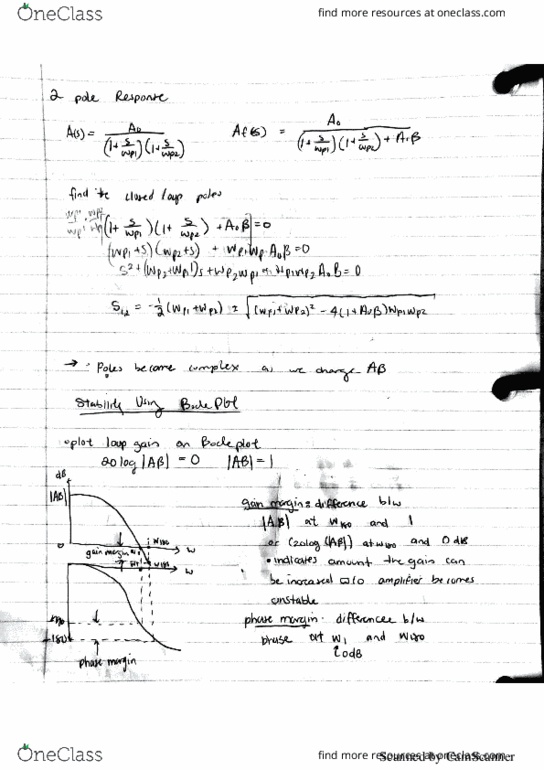 OneClass
find more resources at oneclass.com
2 pole Response
A(s) = A0 / (1 + s/wp1)(1 + s/wp2)
Af(s) = A0 / (1 + s/wp1)(1 + s/wp2) + A0β
find the closed loop poles
(1 + s/wp1)(1 + s/wp2) + A0β = 0
(wp1+s)(wp2+s) + wp1wp2A0β = 0
s² + (wp2+wp1)s + wp2wp1 + wp1wp2A0β = 0
S1,2 = -½(wp1+wp2) ± √(wp1+wp2)² - 4(1+A0β)wp1wp2
→ • Poles become complex as we change Aβ
Stability Using Bode Plot
• plot loop gain on Bode plot
20log|Aβ| = 0 |Aβ| = 1
dB
|Aβ|
0
gain margin
w180
w
w180
w
-180
phase margin
gain margin: difference b/w
|Aβ| at w180 and 1
or (20log|Aβ|) at w180 and 0dB
• indicates amount the gain can
be increased amplifier becomes
unstable
phase margin: difference b/w
phase at w1 and w180
0dB
OneClass
find more resources at oneclass.com
Scanned by CamScanner